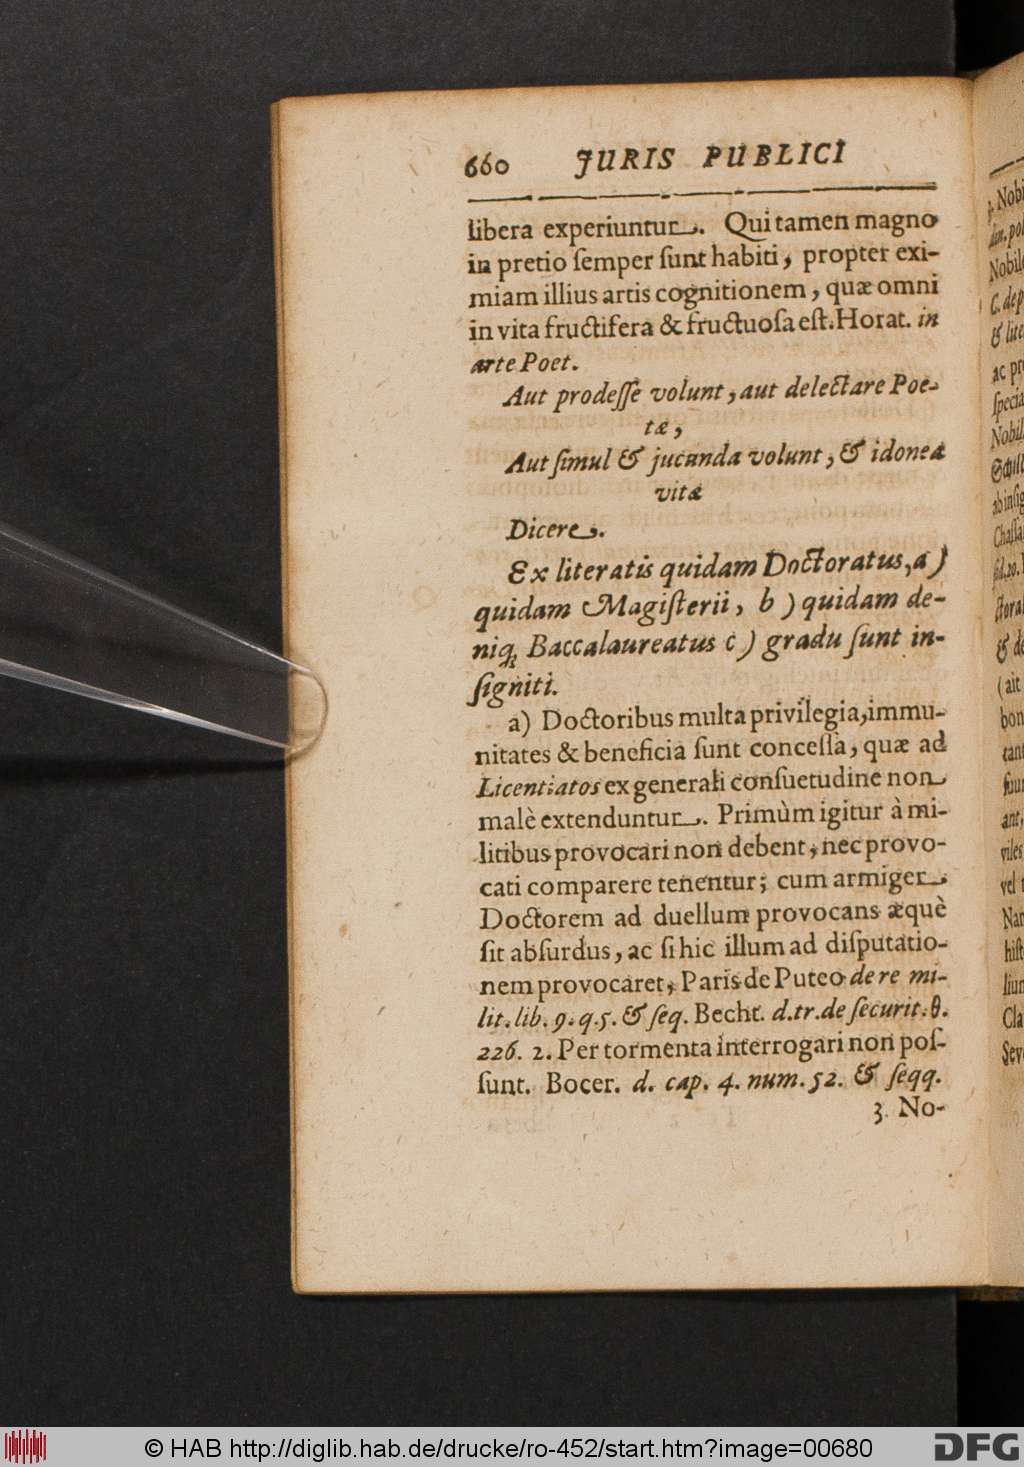 660 JURIS PUBLICI
libera experiuntur. Qui tamen magno
in pretio ſemper ſunt habiti, propter exi-
miam illius artis cognitionem, quæ omni
in vita fructifera & fructuoſa eſt. Horat. in
arte Poet.
Aut prodeſſe volunt, aut delectare Poe-
tæ,
Aut ſimul & jucunda volunt, & idonea
vitæ
Dicere.
Ex literatis quidam Doctoratus, a)
quidam Magiſterii, b) quidam de-
niq; Baccalaureatus c) gradu ſunt in-
ſigniti.
a) Doctoribus multa privilegia, immu-
nitates & beneficia ſunt conceſſa, quæ ad
Licentiatos ex generali conſuetudine non
malè extenduntur. Primùm igitur à mi-
litibus provocari non debent, nec provo-
cati comparere tenentur; cum armiger
Doctorem ad duellum provocans æquè
ſit abſurdus, ac ſi hic illum ad diſputatio-
nem provocaret, Paris de Puteo de re mi-
lit. lib. 9. q. 5. & ſeq. Becht. d. tr. de ſecurit. θ.
226. 2. Per tormenta interrogari non poſ-
ſunt. Bocer. d. cap. 4. num. 52. & ſeqq.
3. No-
© HAB http://diglib.hab.de/drucke/ro-452/start.htm?image=00680
DFG